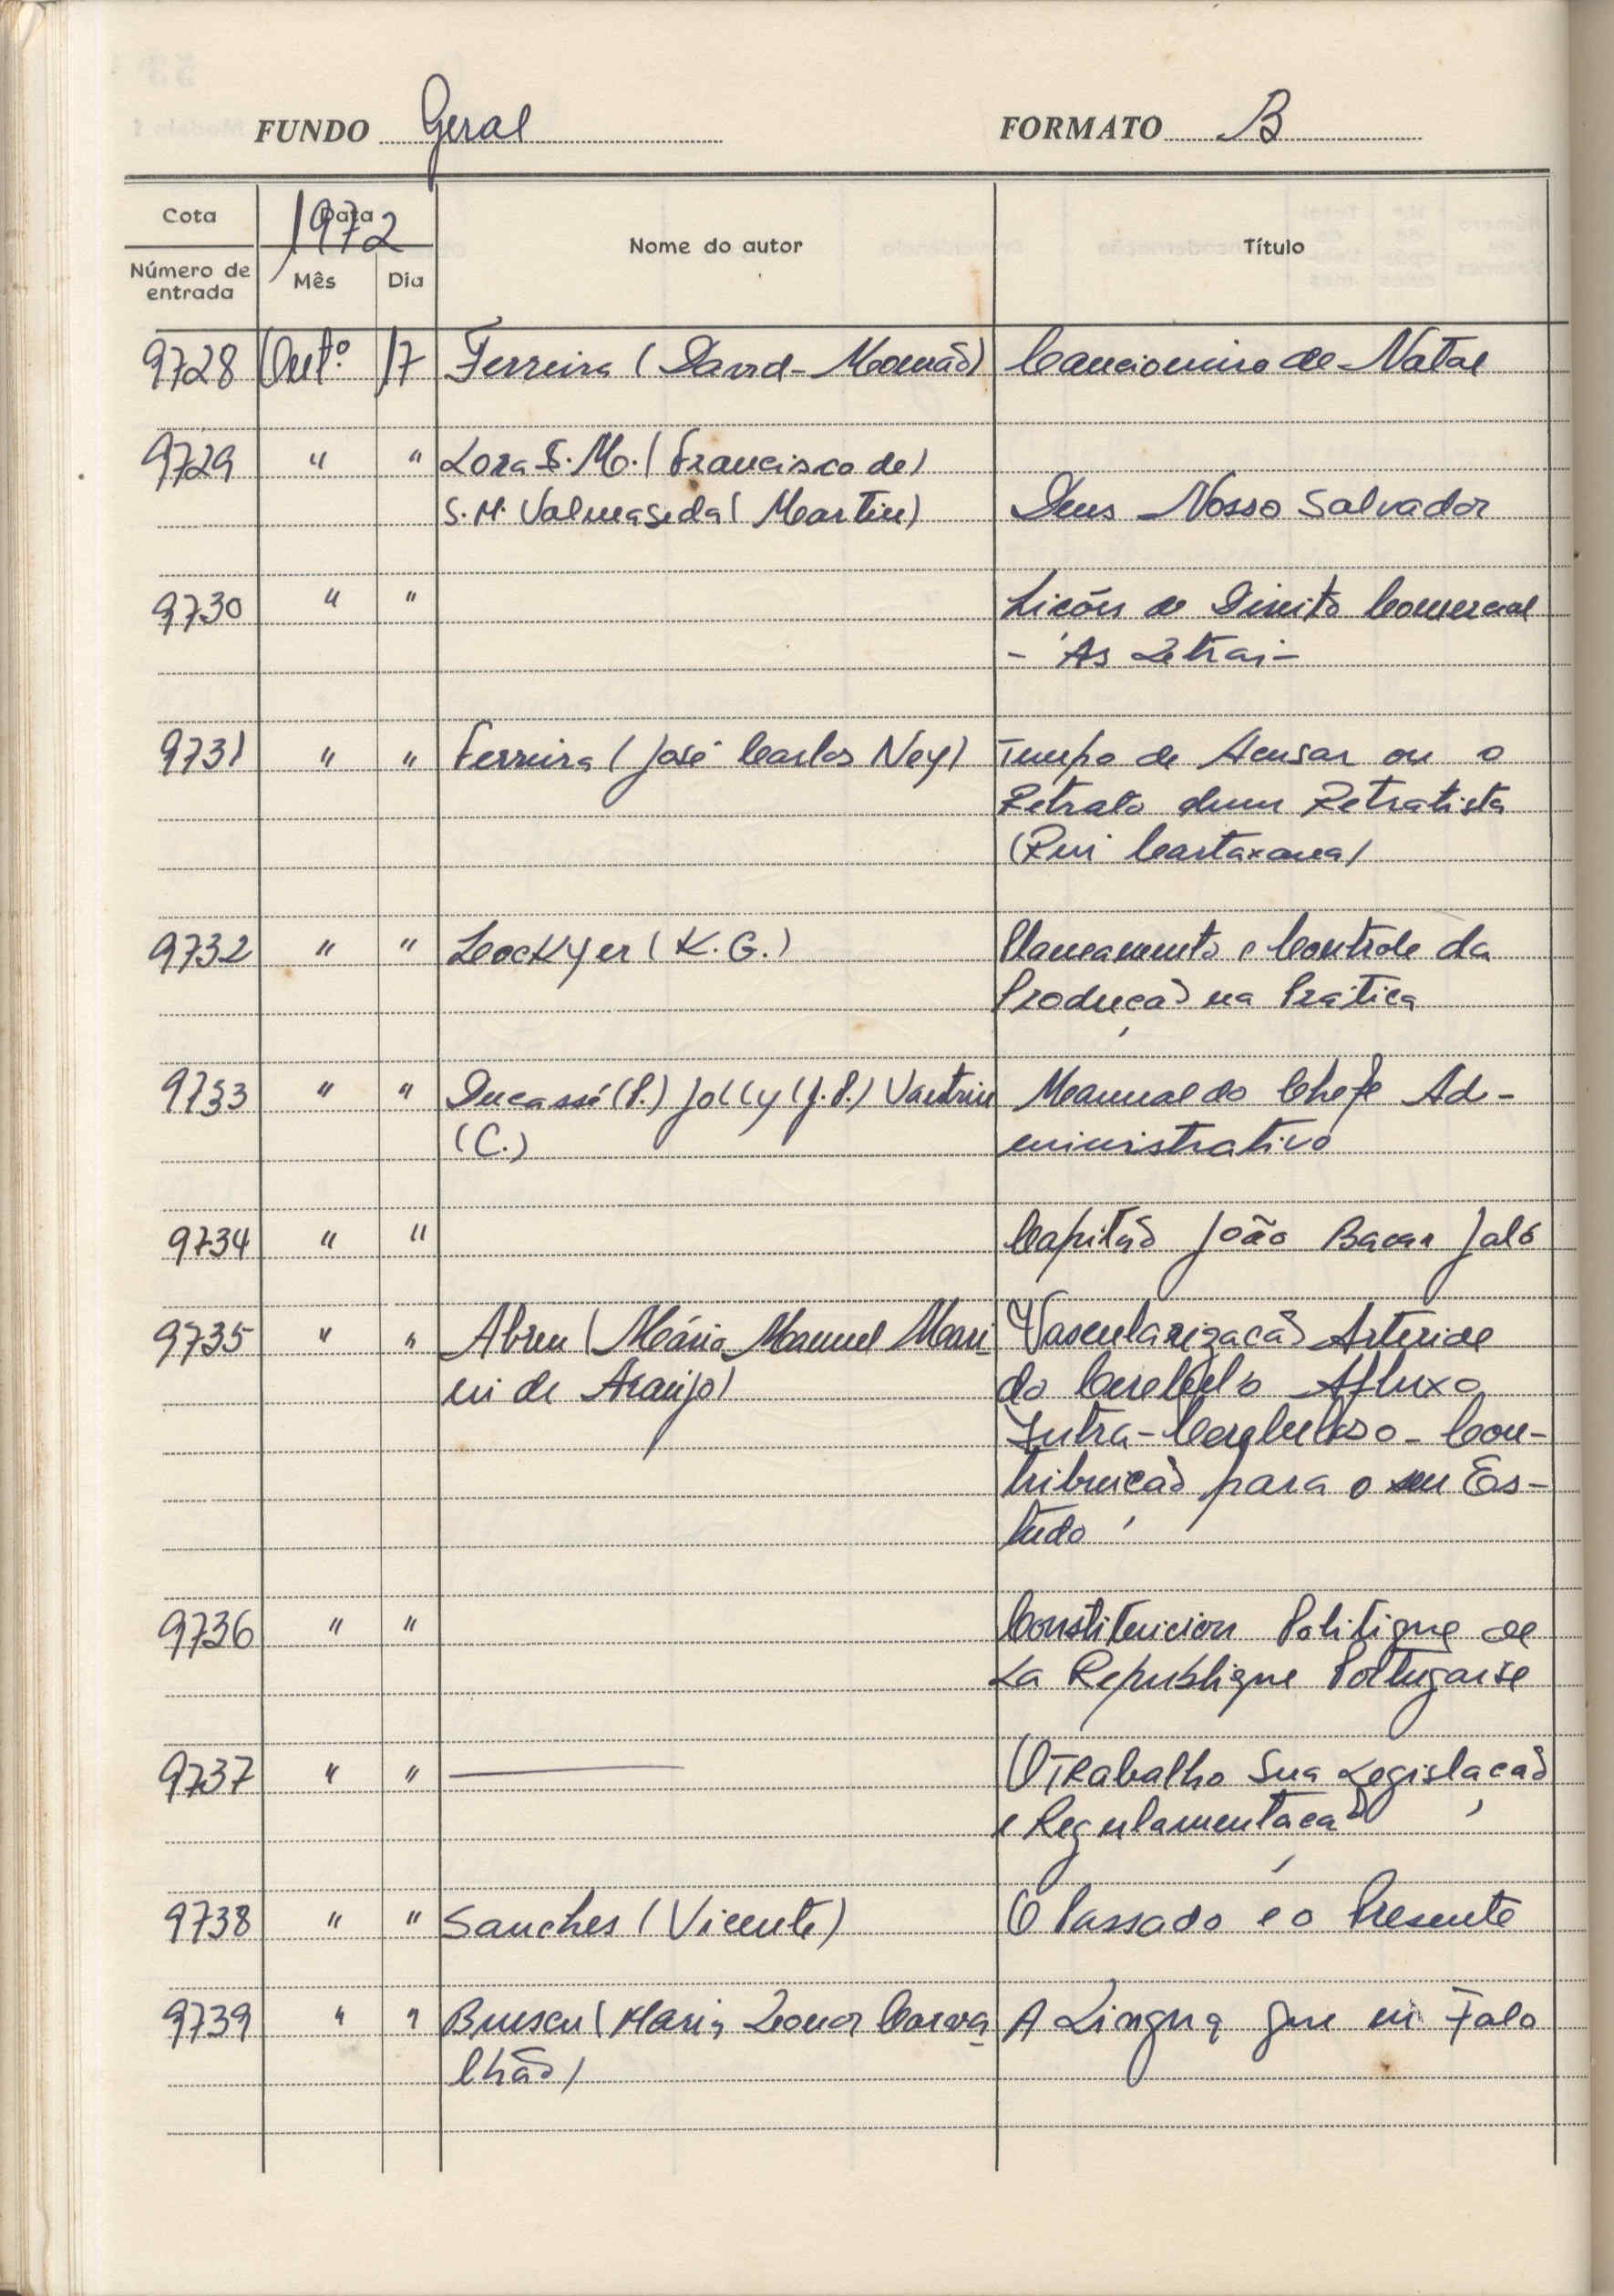 FUNDO Geral FORMATO B
Cota Data 1972 Nome do autor Título
Número de entrada Mês Dia
9728 Outº 17 Ferreira (David-Mourão) Cancioneiro de Natal
9729 " " Lora S.M. (Francisco de)
S.M. Valmaseda (Martin) Deus Nosso Salvador
9730 " " Licões de Direito Comercial
- As Letras -
9731 " " Ferreira (José Carlos Ney) Tempo de Acusar ou o
Retrato dum Retratista
(Rui Cartaxana)
9732 " " Lockyer (K. G.) Planeamento e Controle da
Produção na Prática
9733 " " Ducassé (P.) Jolly (J.P.) Vautrin Manual do Chefe Ad-
(C.) ministrativo
9734 " " Capitão João Bacar Jaló
9735 " " Abreu (Mário Manuel Mari- Vascularização Arterial
ni de Araújo) do Cerebelo Afluxo
Intra-Cerebeloso - Con-
tribuição para o seu Es-
tudo
9736 " " Constituicion Politique de
La Republique Portugaise
9737 " " — O Trabalho Sua Legislação
e Regulamentação
9738 " " Sanches (Vicente) O Passado e o Presente
9739 " " Buescu (Maria Leonor Carva- A Lingua que eu Falo
lhão)